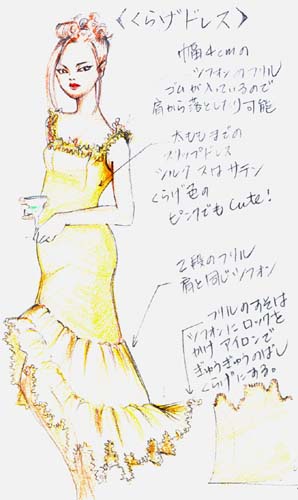 《くらげドレス》
幅4cmの
シフォンのフリル
ゴムが入っているので
肩から落としたり可能
太ももまでの
スリップドレス
シルク又はサテン
くらげ色の
ピンクでもCute!
2段のフリル
肩と同じシフォン
フリルのすそは
シフォンにロックを
かけアイロンで
ぎゅうぎゅうのばし
くらげにする。